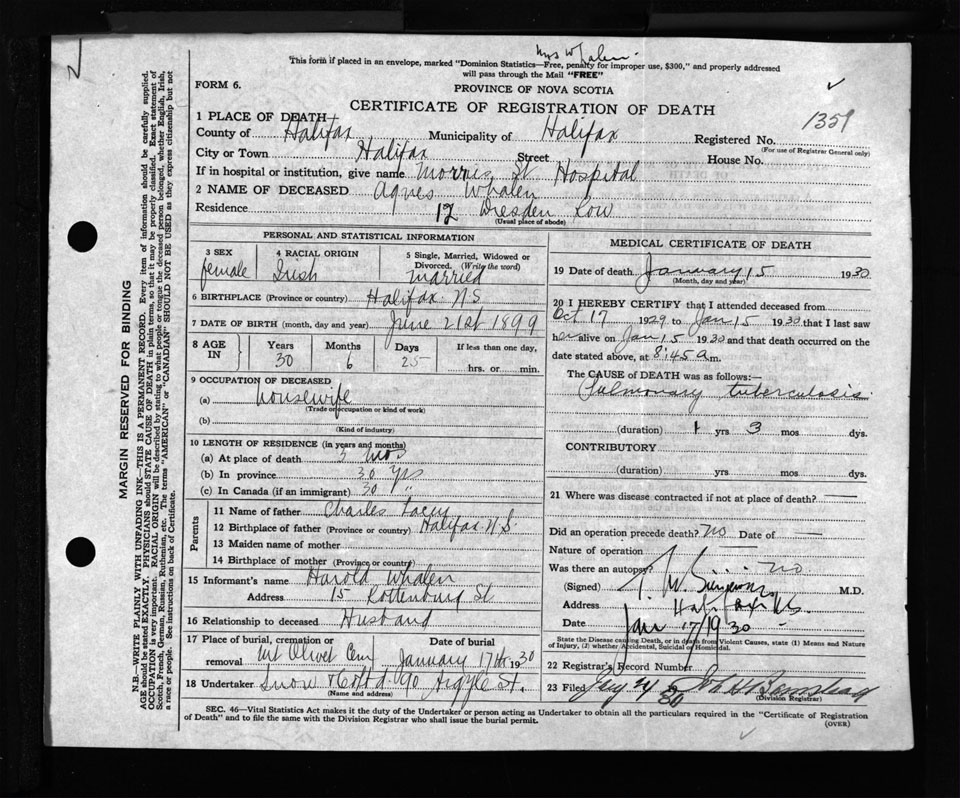 Mrs Whalen
This form if placed in an envelope, marked "Dominion Statistics—Free, penalty for improper use, $300," and properly addressed
will pass through the Mail "FREE"
FORM 6.
PROVINCE OF NOVA SCOTIA
CERTIFICATE OF REGISTRATION OF DEATH
1351
1 PLACE OF DEATH
County of Halifax Municipality of Halifax Registered No.
(For use of Registrar General only)
City or Town Halifax Street House No.
If in hospital or institution, give name Morris St Hospital
2 NAME OF DECEASED Agnes Whalen
Residence 12 Dresden Row
(Usual place of abode)
PERSONAL AND STATISTICAL INFORMATION
3 SEX female
4 RACIAL ORIGIN Irish
5 Single, Married, Widowed or
Divorced. (Write the word)
married
6 BIRTHPLACE (Province or country) Halifax N S
7 DATE OF BIRTH (month, day and year) June 21st 1899
8 AGE IN Years 30 Months 6 Days 25 If less than one day,
hrs. or min.
9 OCCUPATION OF DECEASED
(a) housewife
(Trade or occupation or kind of work)
(b)
(Kind of industry)
10 LENGTH OF RESIDENCE (in years and months)
(a) At place of death 3 mos
(b) In province 30 yrs
(c) In Canada (if an immigrant) 30 "
Parents
11 Name of father Charles
12 Birthplace of father (Province or country) Halifax N.S
13 Maiden name of mother
14 Birthplace of mother
(Province or country)
15 Informant's name Harold Whalen
Address 15 Rottenburg St
16 Relationship to deceased Husband
17 Place of burial, cremation or removal Mt Olivet Cem
Date of burial January 17th 1930
18 Undertaker Snow & Co Ltd 90 Argyle St.
(Name and address)
MEDICAL CERTIFICATE OF DEATH
19 Date of death January 15 1930
(Month, day and year)
20 I HEREBY CERTIFY that I attended deceased from
Oct 17 1929 to Jan 15 1930 that I last saw
her alive on Jan 15 1930 and that death occurred on the
date stated above, at 8:45 a m.
The CAUSE OF DEATH was as follows:—
Pulmonary tuberculosis.
(duration) 1 yrs 3 mos dys.
CONTRIBUTORY
(duration) yrs mos dys.
21 Where was disease contracted if not at place of death?
Did an operation precede death? no Date of
Nature of operation
Was there an autopsy? no
(Signed) M.D.
Address Halifax N.S.
Date Jan 17/1930
State the Disease causing Death, or in death from Violent Causes, state (1) Means and Nature
of Injury, (2) whether Accidental, Suicidal or Homicidal.
22 Registrar's Record Number
23 Filed 30
(Division Registrar)
SEC. 46—Vital Statistics Act makes it the duty of the Undertaker or person acting as Undertaker to obtain all the particulars required in the "Certificate of Registration
of Death" and to file the same with the Division Registrar who shall issue the burial permit.
(OVER)
MARGIN RESERVED FOR BINDING
N.B.—WRITE PLAINLY WITH UNFADING INK—THIS IS A PERMANENT RECORD. Every item of information should be carefully supplied.
AGE should be stated EXACTLY. PHYSICIANS should STATE CAUSE OF DEATH in plain terms, so that it may be properly classified. Exact statement of
OCCUPATION is very important. RACIAL ORIGIN will be described by stating to what people or tongue the deceased person belonged, whether English, Irish,
Scotch, French, German, Russian, Ruthenian, etc. The terms "AMERICAN" or "CANADIAN" SHOULD NOT BE USED as they express citizenship but not
a race or people. See instructions on back of Certificate.